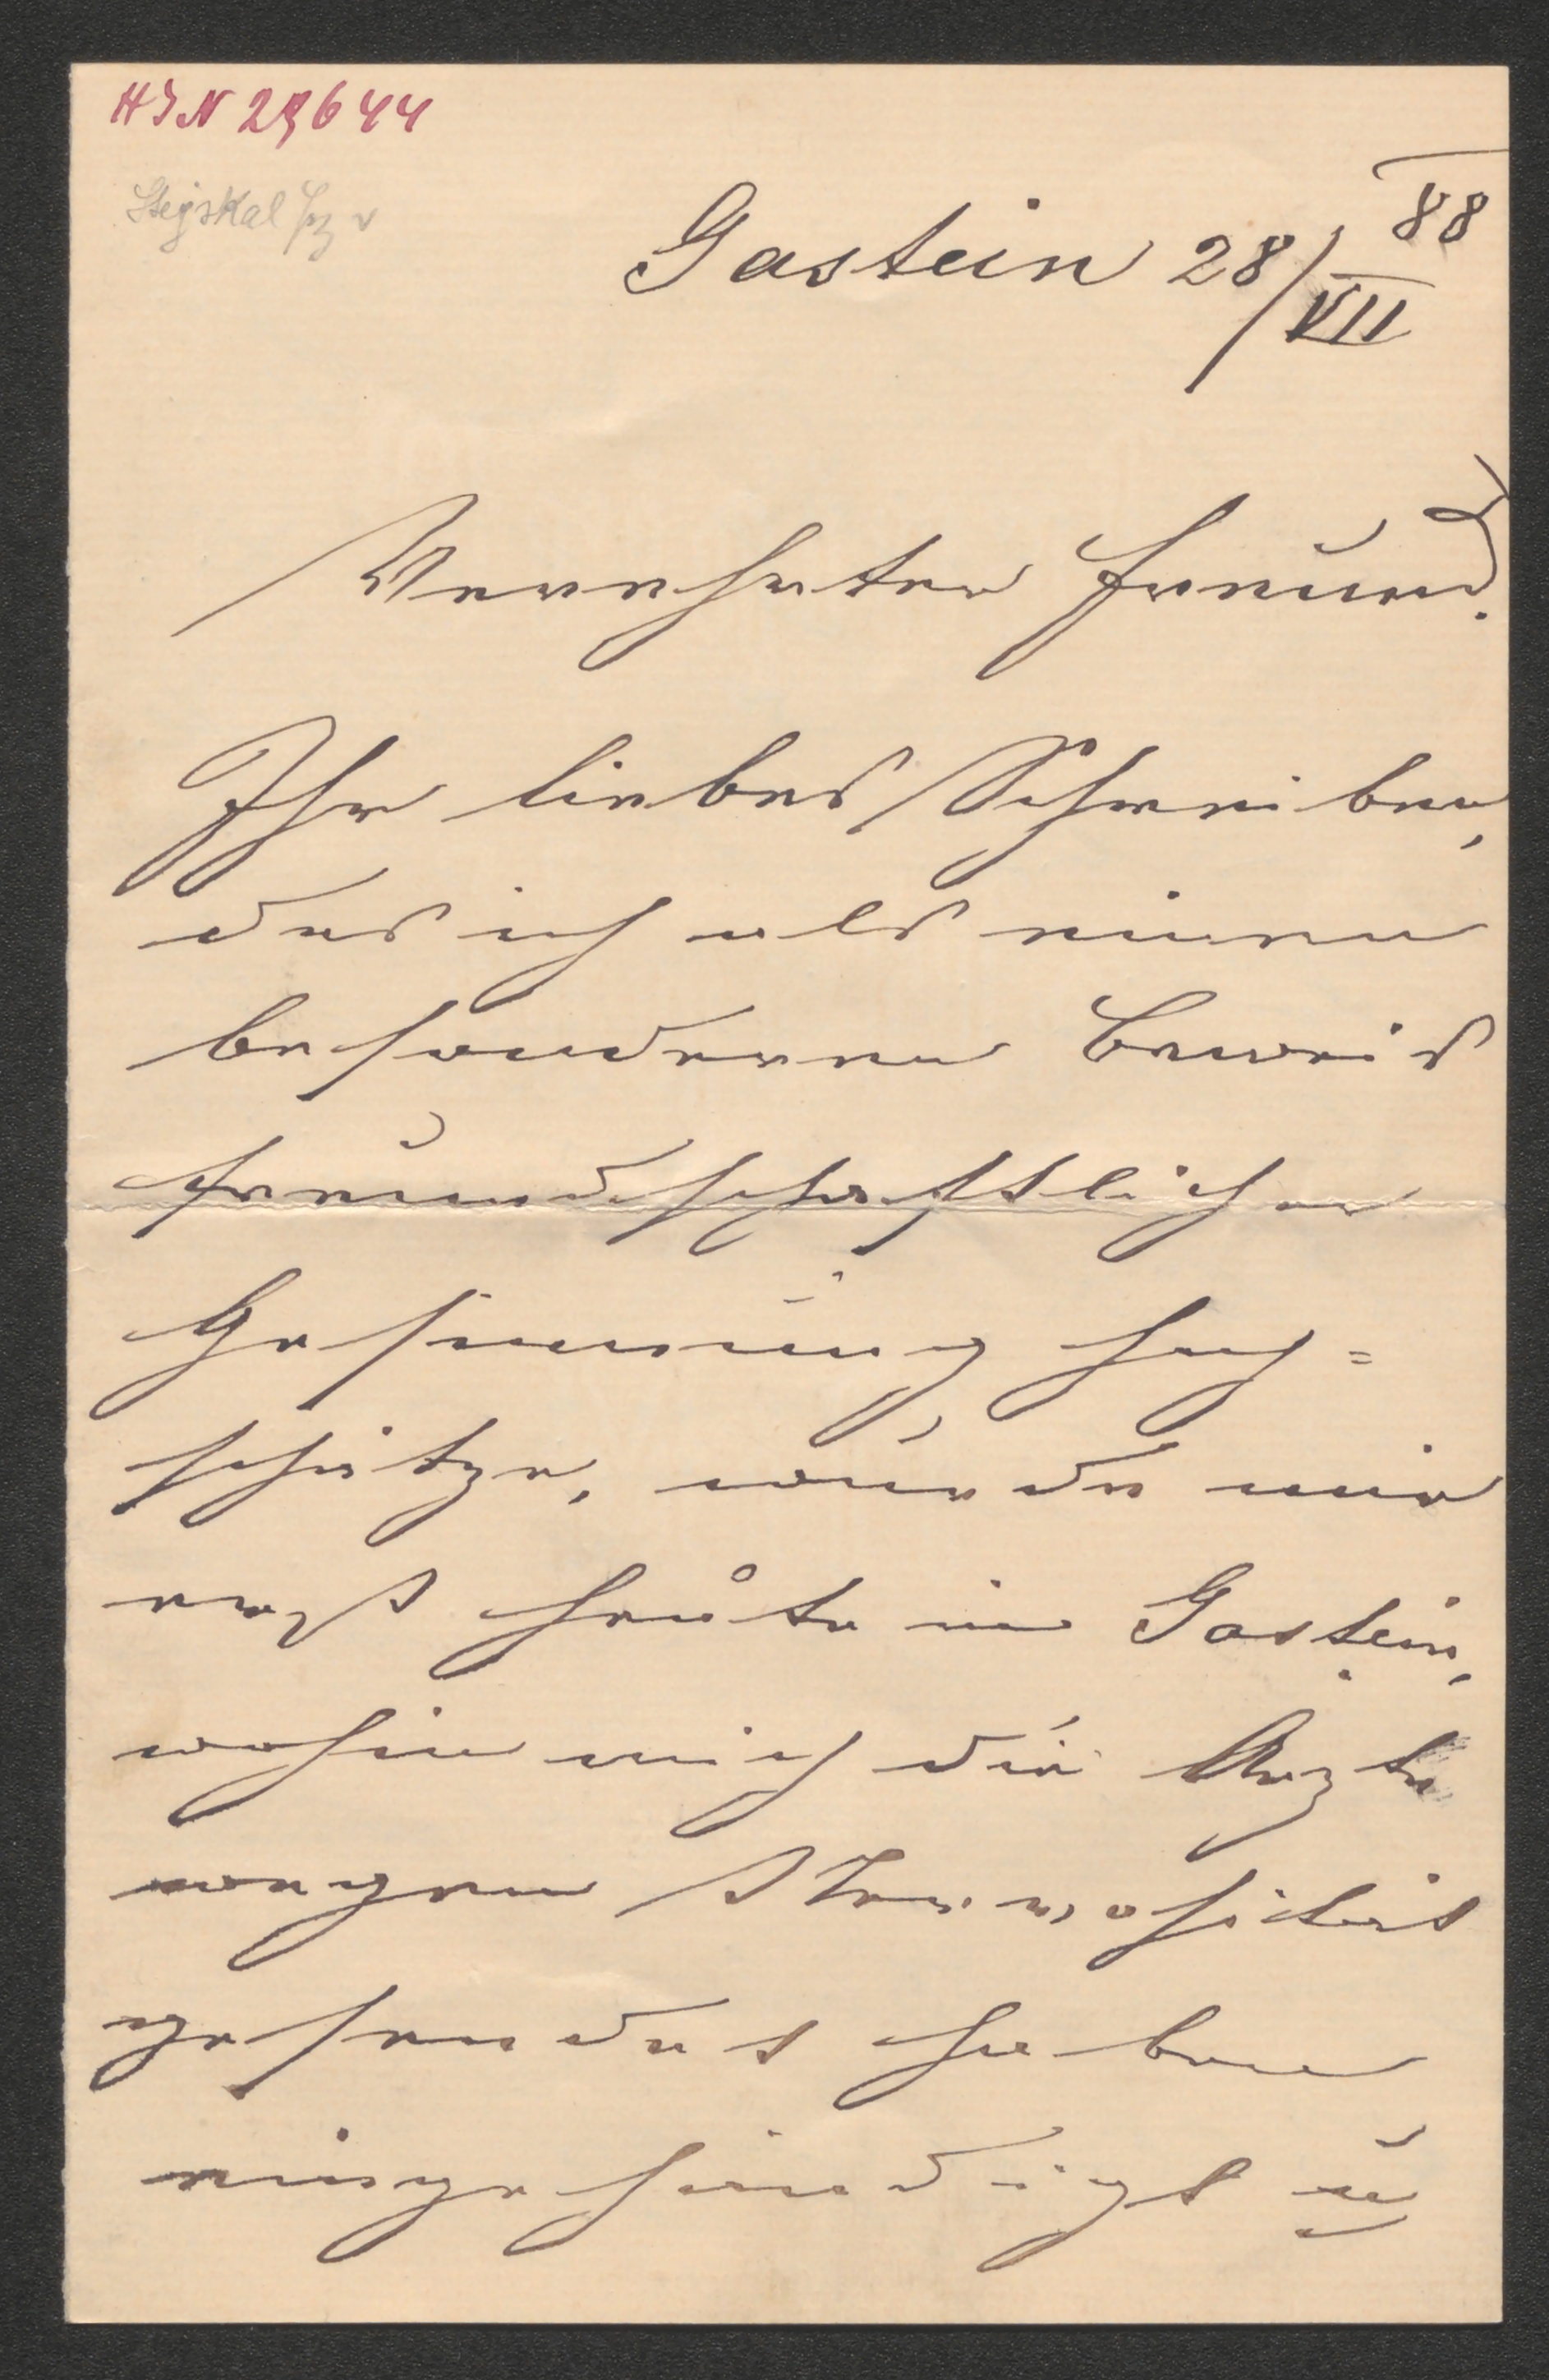 HIN 29644
Stejskal
Gastein 28/VII 88
Verehrter Freund.
Ihr liebes Schreiben,
das ich als einen
besonderen Beweis
freundschaftlicher
Gesinnung hoch=
schätze, wurde mir
erst heute in Gastein,
wohin mich die Ärzte
wegen Nervosität
gesendet haben
eingehändigt u